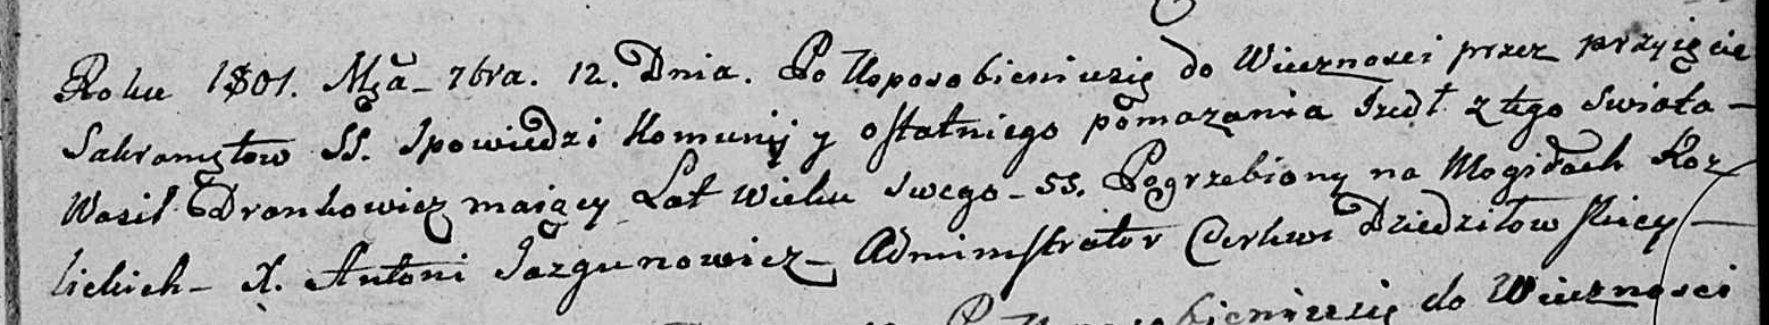 Roku 1801. Mça_ 7bra. 12. Dnia. Po Usposobieniusię do Wieczności przez przyięcie
Sakramętow SS. Spowiedzi Komunij y ostatniego pomazania Szedł z tego Swiata –
Wasil Drankowicz maiący Lat Wieku Swego – 55. Pogrzebiony na Mogiłach Koz
lickich – X. Antoni Jazgunowicz – Administrator Cerkwi Dziedziłowskiey –
do Wieczności